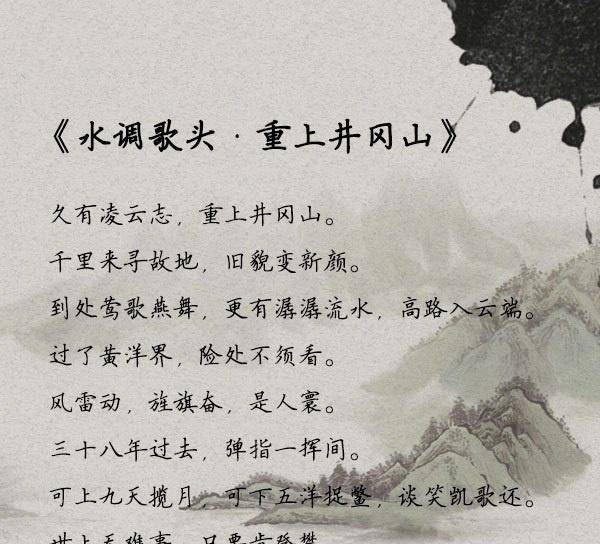 《水调歌头·重上井冈山》
久有凌云志，重上井冈山。
千里来寻故地，旧貌变新颜。
到处莺歌燕舞，更有潺潺流水，高路入云端。
过了黄洋界，险处不须看。
风雷动，旌旗奋，是人寰。
三十八年过去，弹指一挥间。
可上九天揽月，可下五洋捉鳖，谈笑凯歌还。
世上无难事，只要肯登攀